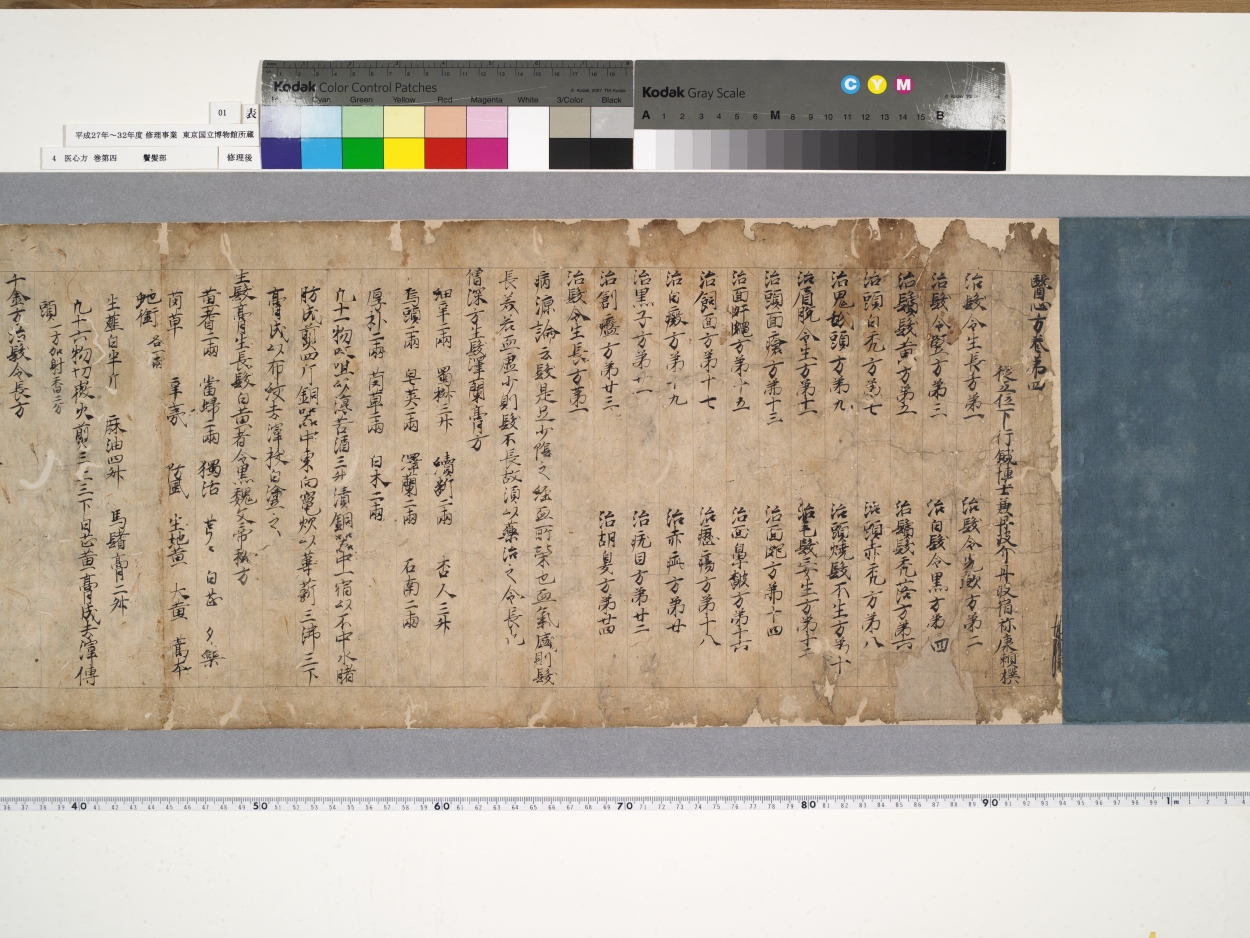 Kodak Color Control Patches
© Kodak, 2007 TM: Kodak
Cyan Green Yellow Red Magenta White 3/Color Black
Kodak Gray Scale
C Y M
A 1 2 3 4 5 6 M 8 9 10 11 12 13 14 15 B
01 表
平成27年～32年度 修理事業 東京国立博物館所蔵
4 医心方 巻第四 鬢髪部 修理後
醫心方巻第四
從五位下行鍼博士兼丹波介丹波宿祢康頼撰
治髮令生長方第一 治髮令光軟方第二
治髮令堅方第三 治白髮令黒方第四
治鬚髮黄方第五 治鬚髮禿落方第六
治頭白禿方第七 治頭赤禿方第八
治鬼舐頭方第九 治頭燒髮不生方第十
治眉脱令生方第十一 治毛髮妄生方第十二
治頭面瘡方第十三 治面皰方第十四
治面䵟䵳方第十五 治面鼻皻方第十六
治飼面方第十七 治癧瘍方第十八
治白癜方第十九 治赤疵方第廿
治黒子方第廿一 治疣目方第廿二
治創瘢方第廿三 治胡臭方第廿四
治髮令生長方第一
病源論云髮是足少陰之經血所榮也血氣盛則髮
長美若血虚少則髮不長故須以藥治之令長也
僧深方生髮澤蘭膏方
細辛二兩 蜀椒三升 續斷二兩 杏人三升
烏頭二兩 皂莢二兩 澤蘭二兩 石南二兩
厚朴二兩 茵草二兩 白朮二兩
凡十一物㕮咀以淳苦酒三升漬銅器中一宿以不中水猪
肪成煎四斤銅器中東向竈炊以葦薪三沸三下
膏成以布絞去滓拔白塗之
生髮膏生長髮白黄者令黒魏文帝秘方
黄耆二兩 當歸二兩 獨活 芎 白芷 夕藥
茵草 辛夷 防風 生地黄 大黄 藁本
虵銜 各一兩
生薤白半斤 麻油四升 馬鬐膏二升
凡十六物切微火煎三上三下白芷黄膏成去滓傅
頭 一方加射香二分
千金方治髮令長方
36 37 38 39 40 50 60 70 80 90 1m